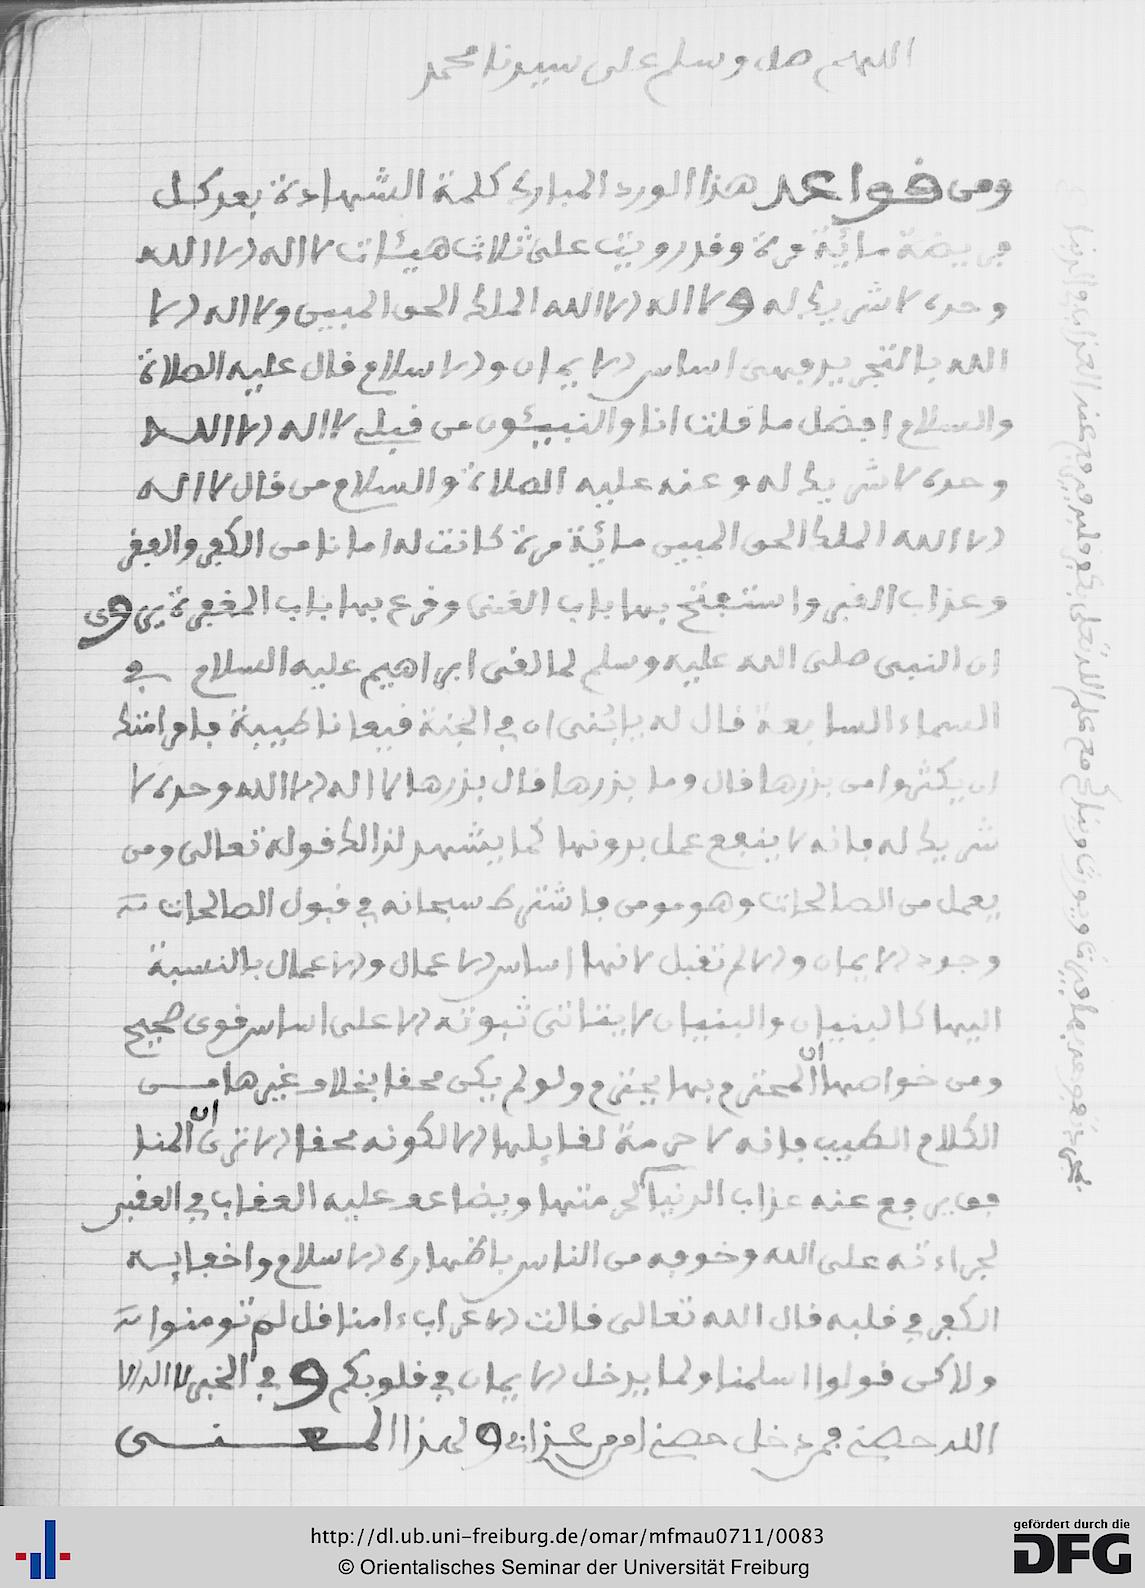 اللهم صل وسلم على سيدنا محمد
ومن قواعد هذا الورد المبارك كلمة الشهادة بعد كل
فريضة مائية مرة وقد رويت على ثلاث هيئات لا اله الا الله
وحده لا شريك له ولا اله الا الله الملك الحق المبين ولا اله الا
الله بالتجريد وهي اساس الايمان والاسلام قال عليه الصلاة
والسلام افضل ما قلت انا والنبيئون من قبلي لا اله الا الله
وحده لا شريك له وعنه عليه الصلاة والسلام من قال لا اله
الا الله الملك الحق المبين مائية مرة كانت له امانا من الكفر والفقر
وعذاب القبر واستفتح بها باب الغنى وقرع بها باب المغفرة يروى
ان النبي صلى الله عليه وسلم لما لقى ابراهيم عليه السلام في
السماء السابعة قال له يا بني ان في الجنة قيعانا طيبة فامر امتك
ان يكثروا من بذرها قال وما بذرها قال بذرها لا اله الا الله وحده لا
شريك له فانه لا ينفع عمل بدونها كما يشهد لذالك قوله تعالى ومن
يعمل من الصالحات وهو مومن فاشترط سبحانه في قبول الصالحات
وجود الايمان والا لم تقبل لانها اساس الاعمال والاعمال بالنسبة
اليها كالبنيان والبنيان لا يتاتى ثبوته الا على اساس قوى صحيح
ومن خواصها ان المحترم بها يحترم ولو لم يكن محقا بخلاف غيرها من
الكلام الطيب فانه لا حرمة لقايلها الا لكونه محقا الا ترى ان المنا
فق يرفع عنه عذاب الدنيا لحرمتها ويضاعف عليه العقاب في العقبى
لجراءته على الله وخوفه من الناس باظهاره الاسلام واخفايه
الكفر في قلبه قال الله تعالى قالت الاعراب ءامنا قل لم تومنوا
ولاكن قولوا اسلمنا ولما يدخل الايمان في قلوبكم وفي الخبر لا اله الا
الله حصني فمن دخل حصني امن من عذابي ولهذا المعنى
http://dl.ub.uni-freiburg.de/omar/mfmau0711/0083
© Orientalisches Seminar der Universität Freiburg
gefördert durch die
DFG